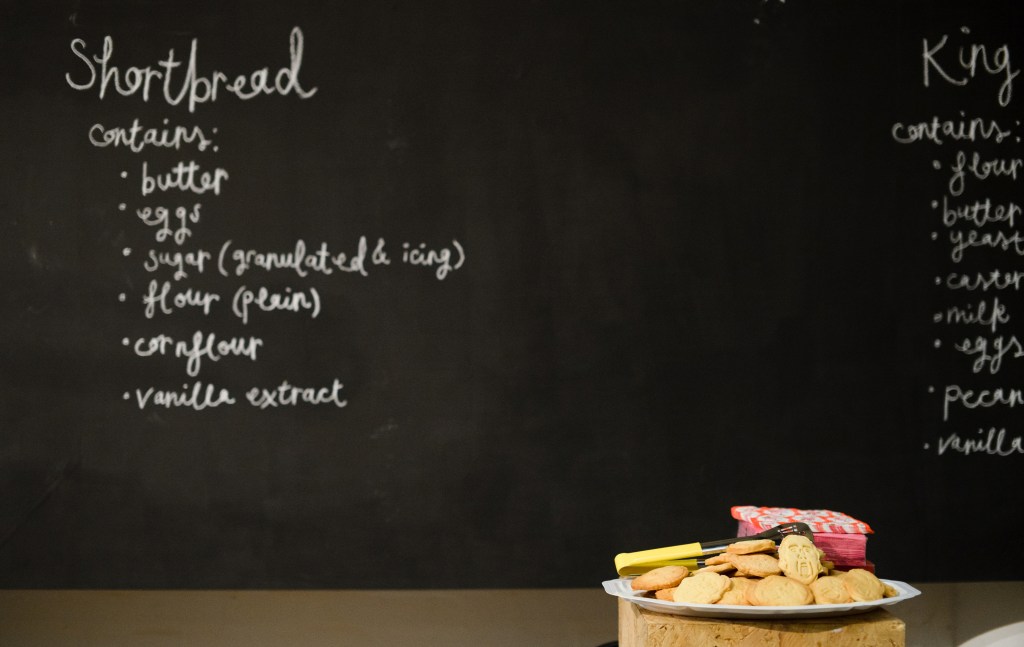 Shortbread
contains:
• butter
• eggs
• sugar (granulated & icing)
• flour (plain)
• cornflour
• vanilla extract
King
contains:
• flour
• butter
• yeast
• caster
• milk
• eggs
• pecan
• vanilla